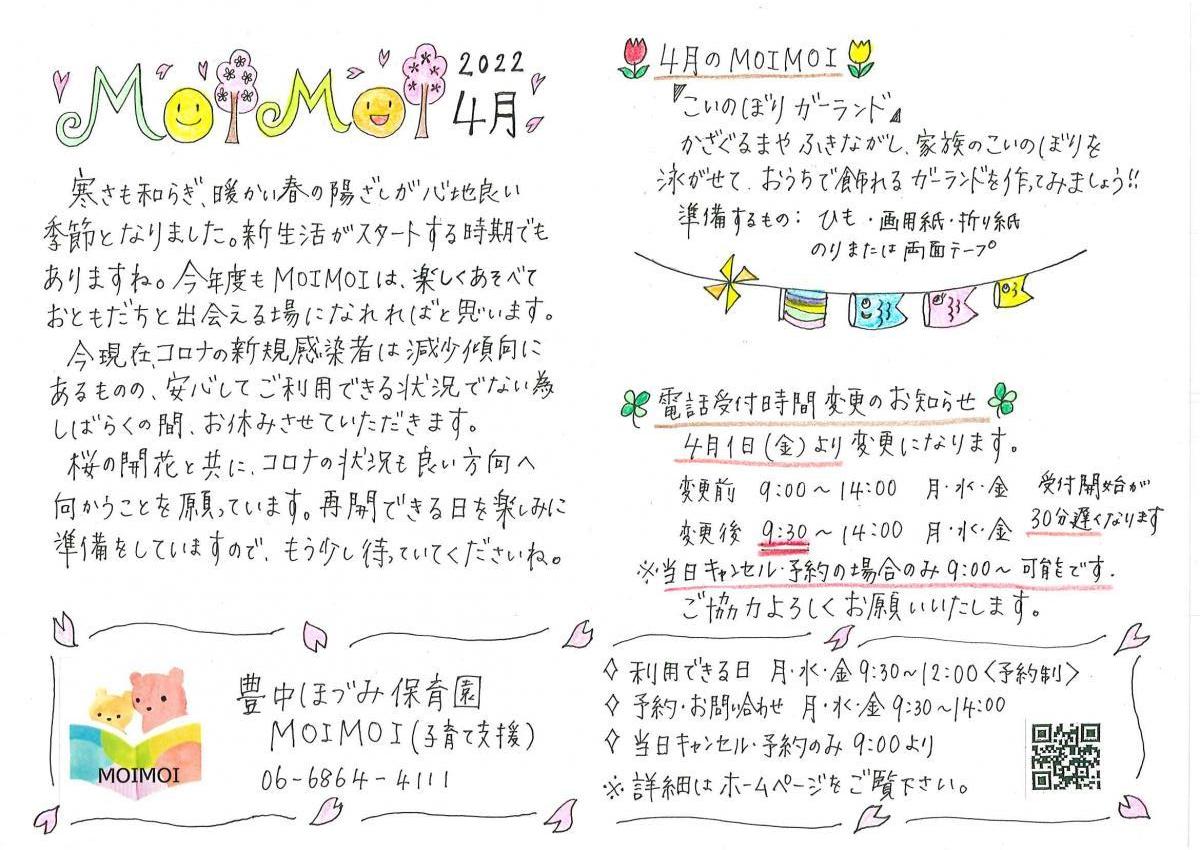 MOIMOI 2022 4月
寒さも和らぎ、暖かい春の陽ざしが心地良い
季節となりました。新生活がスタートする時期でも
ありますね。今年度もMOIMOIは、楽しくあそべて
おともだちと出会える場になれればと思います。
今現在、コロナの新規感染者は減少傾向に
あるものの、安心してご利用できる状況でない為
しばらくの間、お休みさせていただきます。
桜の開花と共に、コロナの状況も良い方向へ
向かうことを願っています。再開できる日を楽しみに
準備をしていますので、もう少し待っていてくださいね。
4月のMOIMOI
『こいのぼりガーランド』
かざぐるまやふきながし、家族のこいのぼりを
泳がせて、おうちで飾れるガーランドを作ってみましょう!!
準備するもの：ひも・画用紙・折り紙
のりまたは両面テープ
電話受付時間変更のお知らせ
4月1日(金)より変更になります。
変更前 9:00～14:00 月・水・金
変更後 9:30～14:00 月・水・金
受付開始が
30分遅くなります
※当日キャンセル・予約の場合のみ9:00～可能です.
ご協力よろしくお願いいたします。
MOIMOI
豊中ほづみ保育園
MOIMOI(子育て支援)
06-6864-4111
◇ 利用できる日 月・水・金9:30～12:00〈予約制〉
◇ 予約・お問い合わせ 月・水・金9:30～14:00
◇ 当日キャンセル・予約のみ 9:00より
※ 詳細はホームページをご覧下さい。